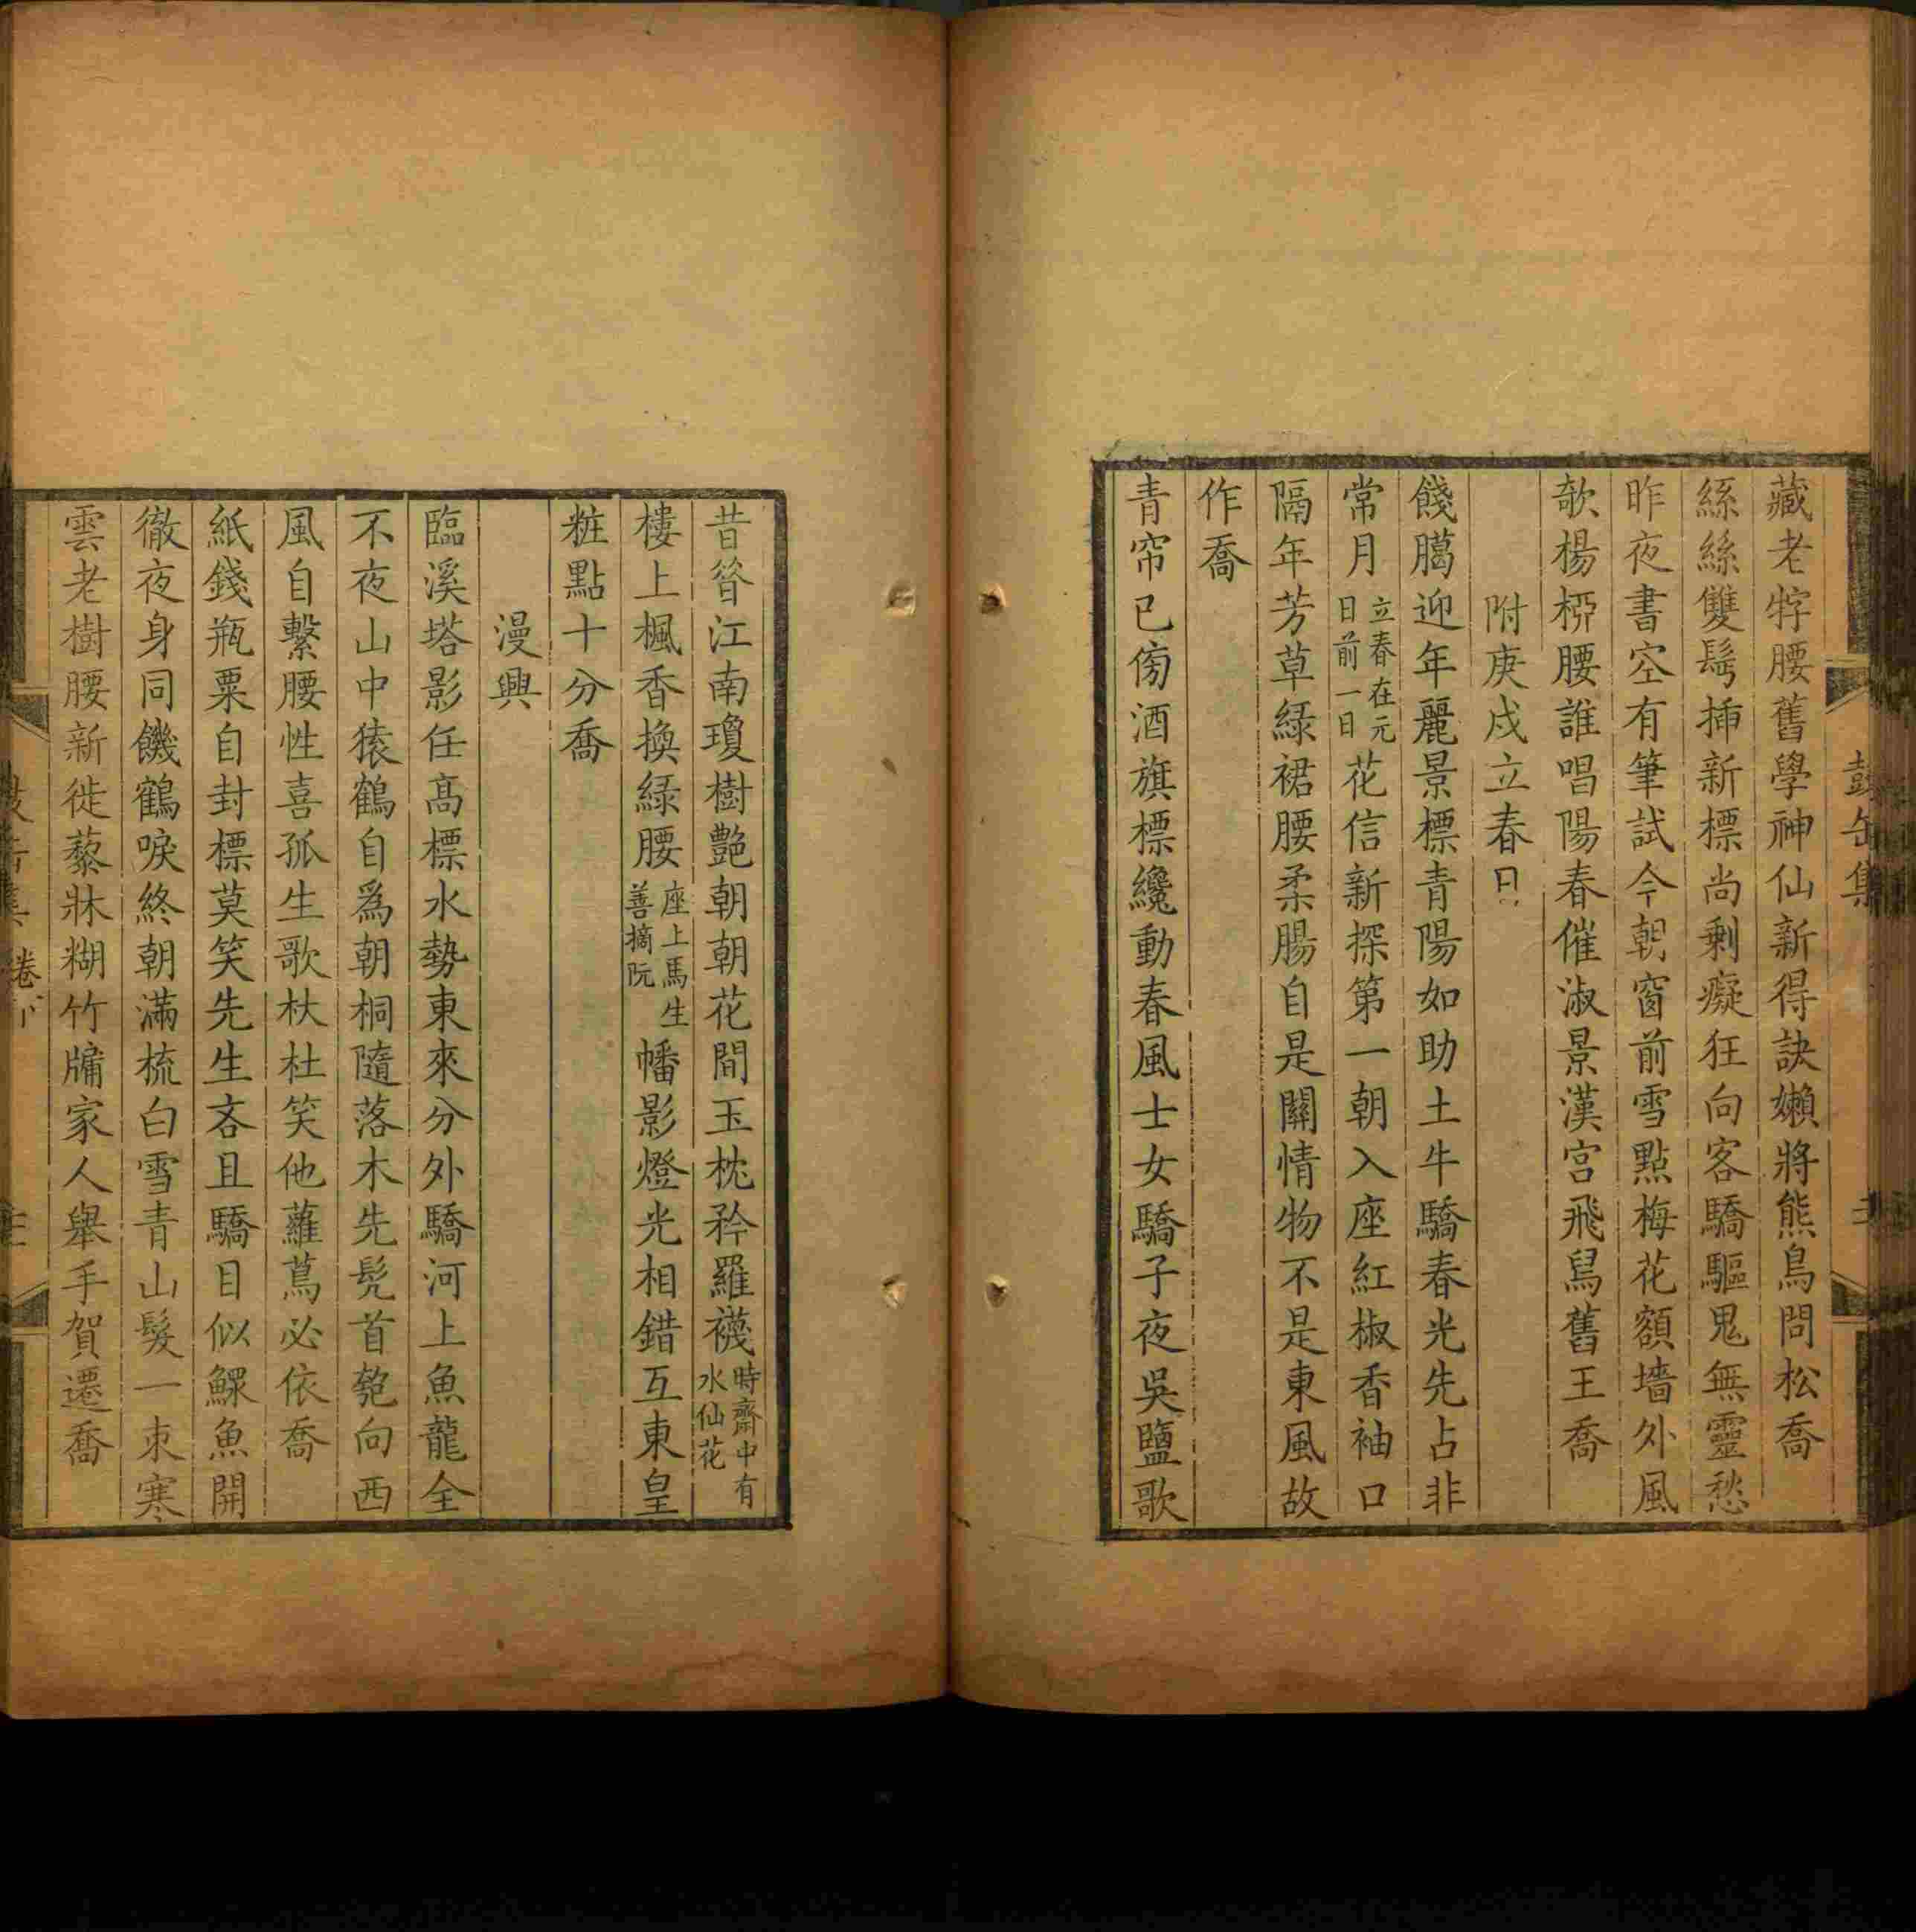 鼓缶集
藏老牸腰舊學神仙新得訣嬾將熊鳥問松喬
絲絲雙髩揷新標尚剩癡狂向客驕驅鬼無靈愁
昨夜書空有筆試今朝窗前雪點梅花額墻外風
欹楊椏腰誰唱陽春催淑景漢宮飛舄舊王喬
附庚戌立春日
餞臈迎年麗景標青陽如助土牛驕春光先占非
常月立春在元日前一日花信新探第一朝入座紅椒香袖口
隔年芳草緑裙腰柔腸自是關情物不是東風故
作喬
青帘已傍酒旗標纔動春風士女驕子夜吳鹽歌
昔昝江南瓊樹艶朝朝花間玉枕矜羅襪時齋中有水仙花
樓上楓香換緑腰座上馬生善摘阮幡影燈光相錯互東皇
粧點十分喬
漫興
臨溪塔影任高標水勢東來分外驕河上魚龍全
不夜山中猿鶴自爲朝桐隨落木先髡首匏向西
風自繫腰性喜孤生歌杕杜笑他蘿蔦必依喬
紙錢瓶粟自封標莫笑先生吝且驕目似鰥魚開
徹夜身同饑鶴唳終朝滿梳白雪青山髮一朿寒
雲老樹腰新徙藜牀糊竹牖家人舉手賀遷喬
卷下